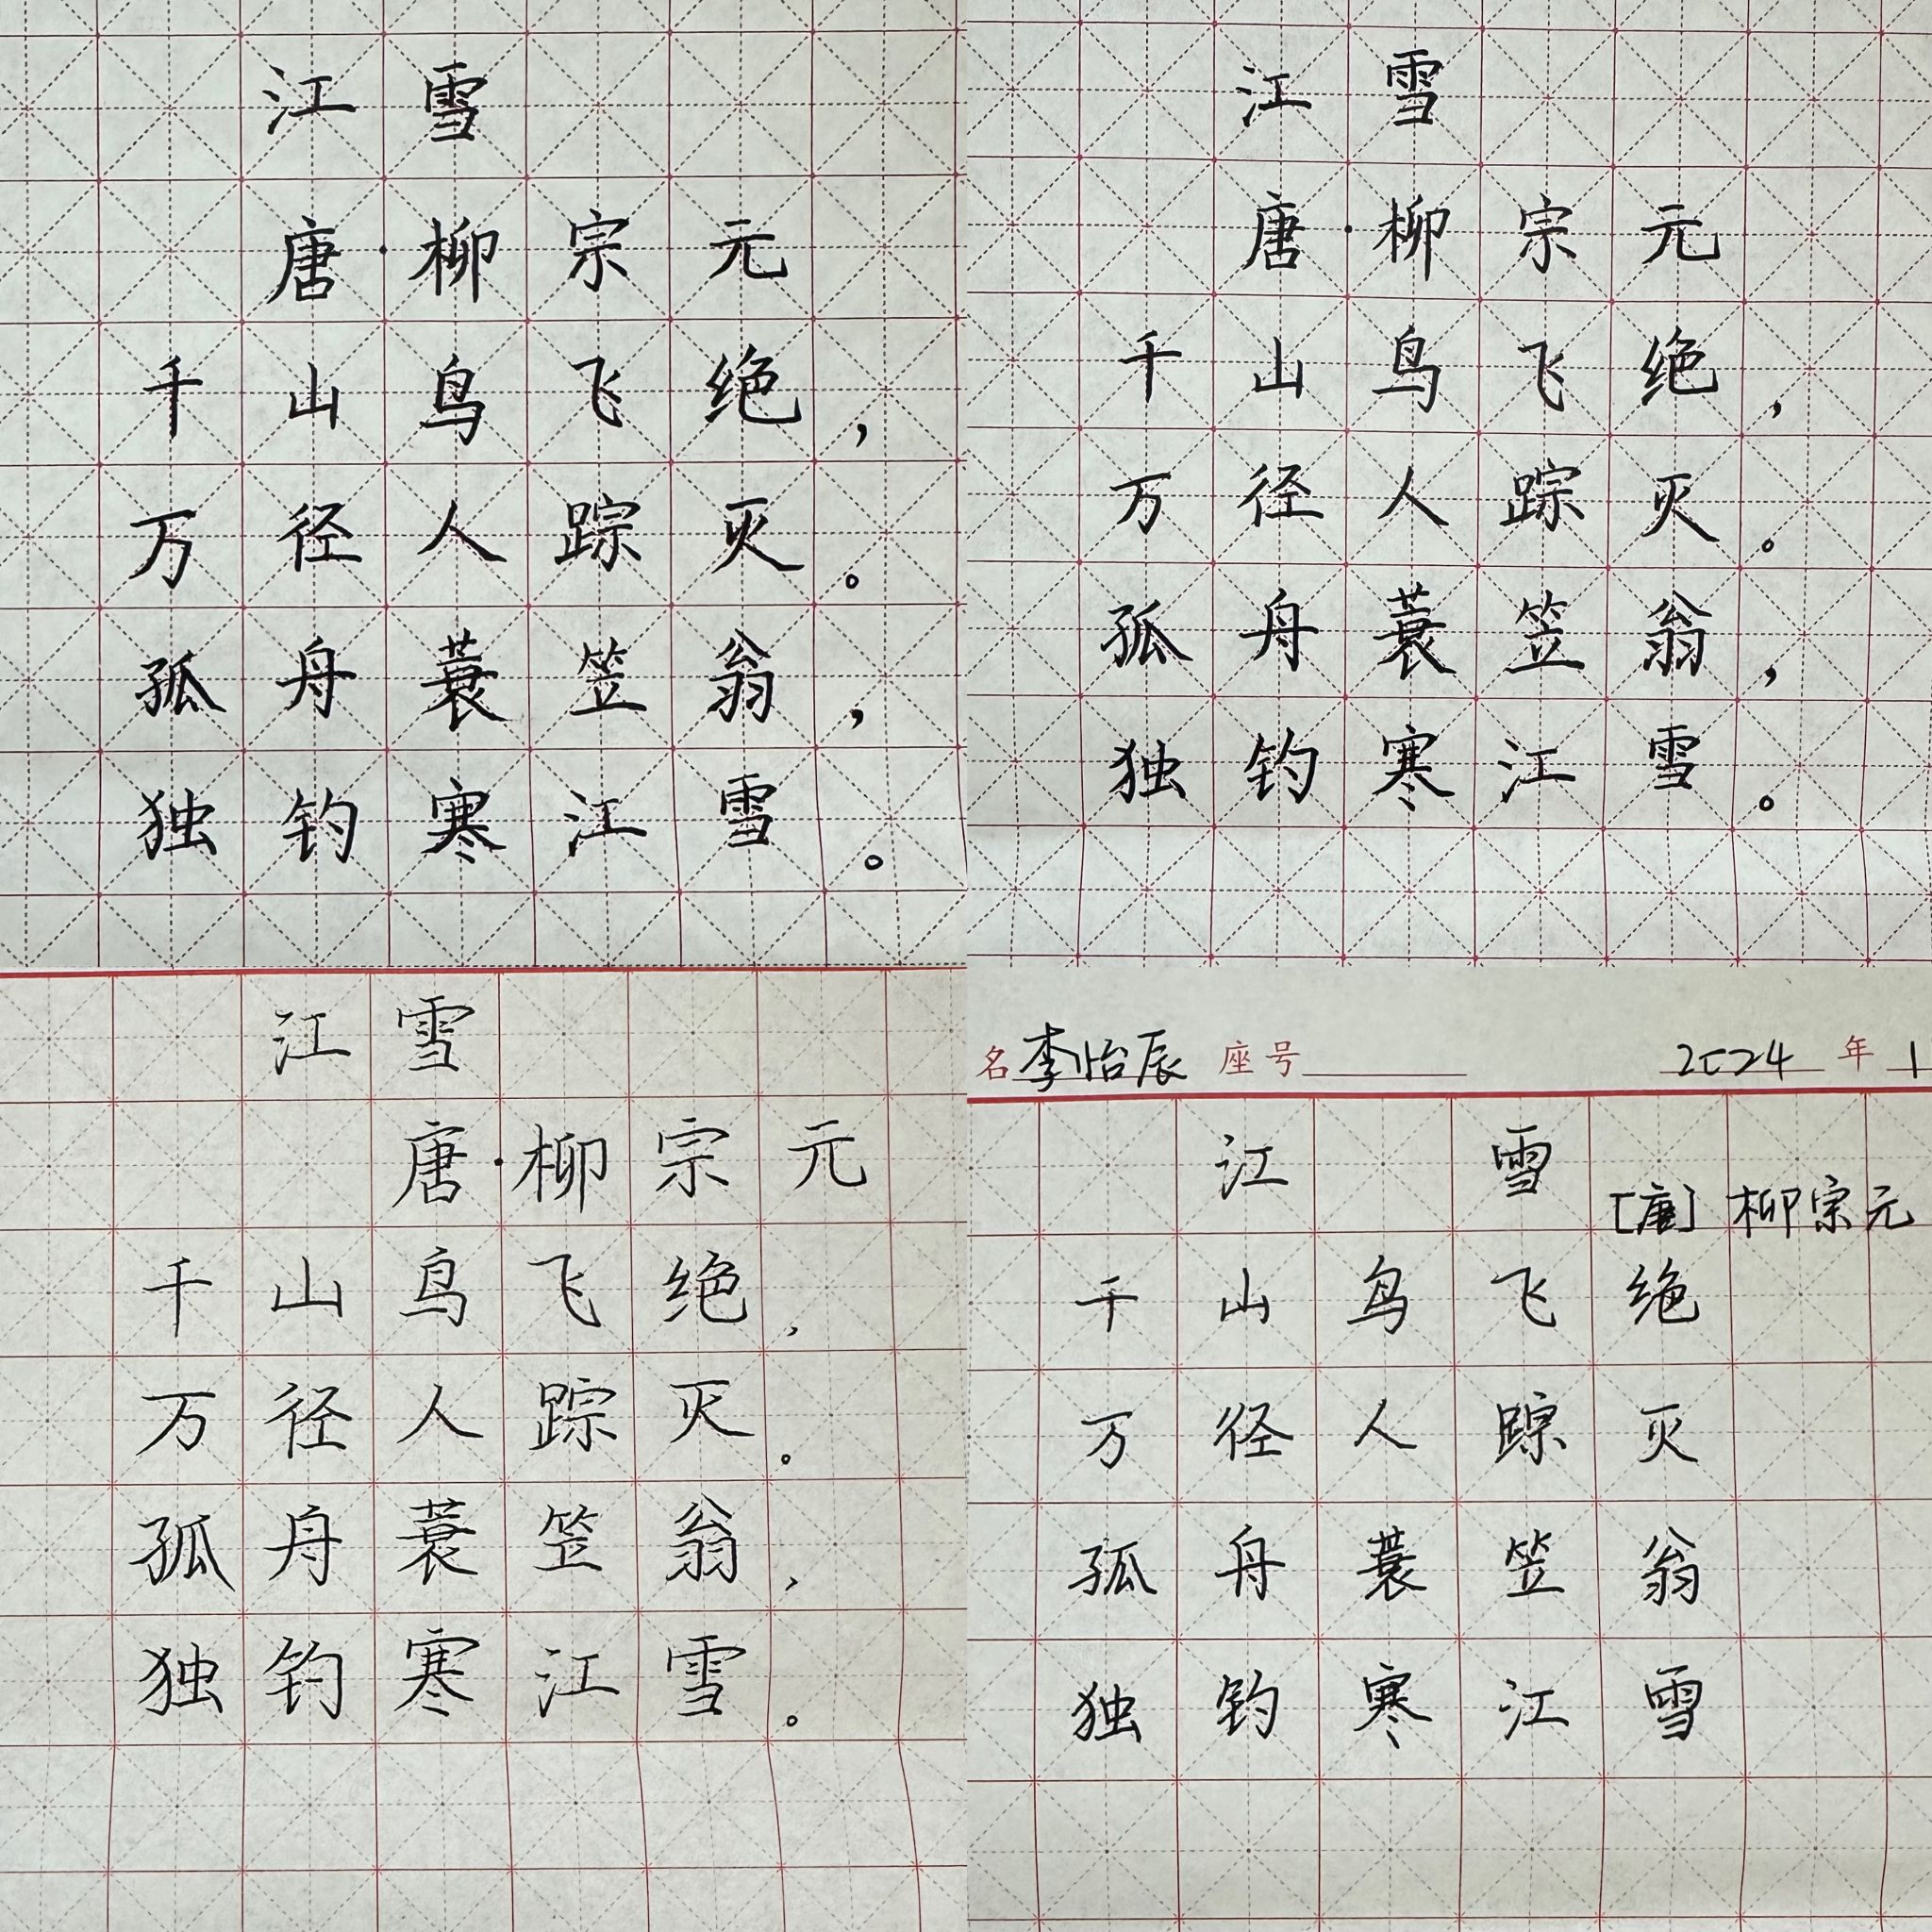 江雪
唐·柳宗元
千山鸟飞绝，
万径人踪灭。
孤舟蓑笠翁，
独钓寒江雪。
江雪
唐·柳宗元
千山鸟飞绝，
万径人踪灭。
孤舟蓑笠翁，
独钓寒江雪。
江雪
唐·柳宗元
千山鸟飞绝，
万径人踪灭。
孤舟蓑笠翁，
独钓寒江雪。
名李怡辰 座号 2024 年 1
江雪
[唐] 柳宗元
千山鸟飞绝
万径人踪灭
孤舟蓑笠翁
独钓寒江雪